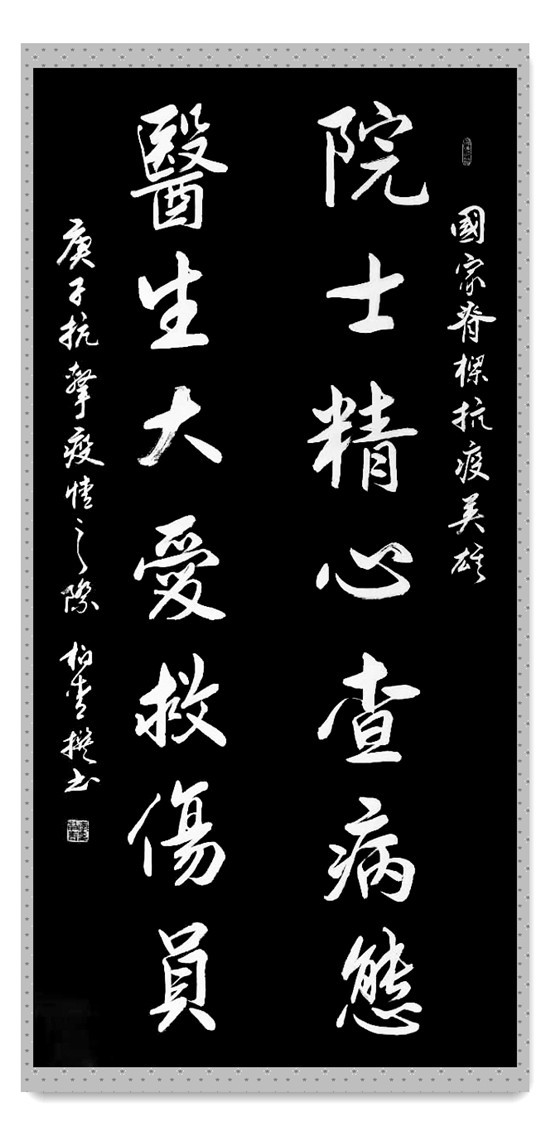 國家脊樑抗疫英雄
院士精心查病態
醫生大愛救傷員
庚子抗擊疫情之際 柏青撰书